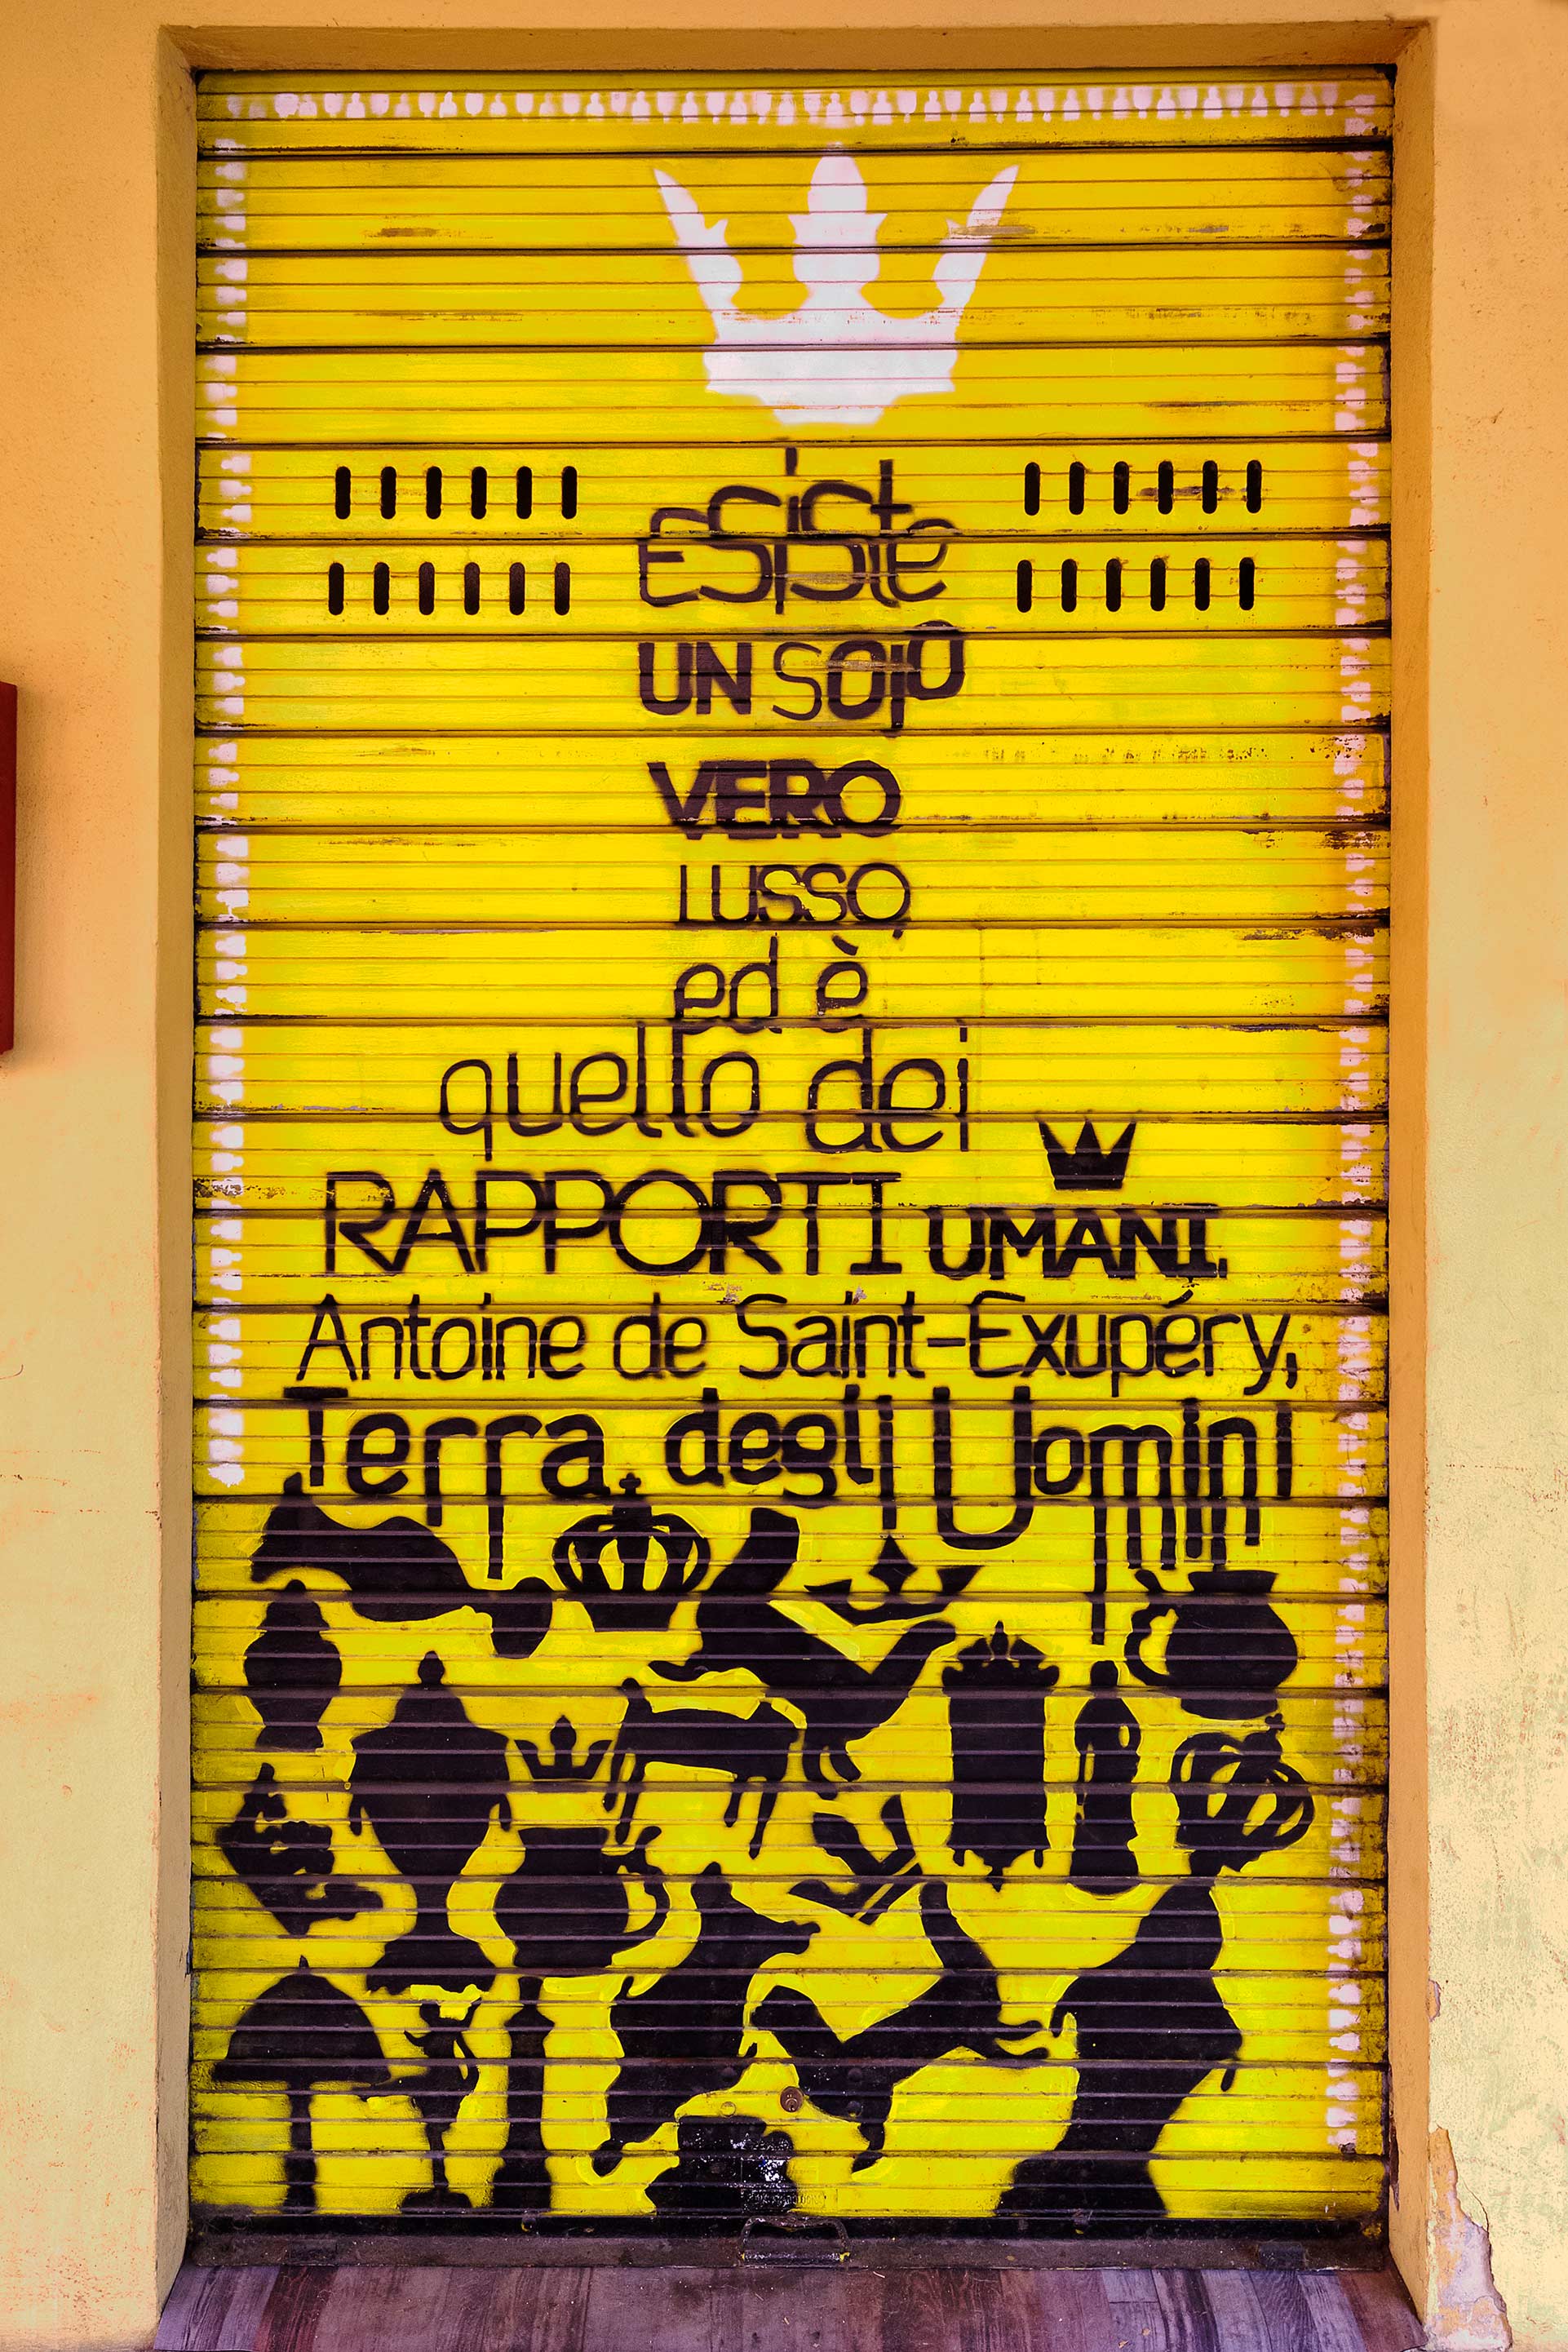 esiste
UN SOlO
VERO
LUSSO,
ed è
quello dei
RAPPORTI UMANI.
Antoine de Saint-Exupéry,
Terra degli Uomini